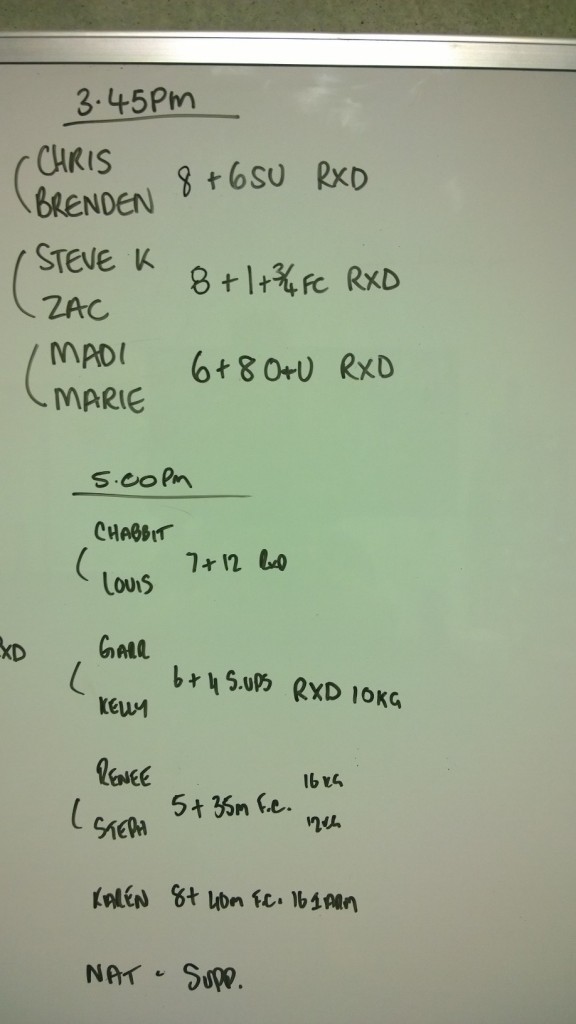 3.45PM
CHRIS
BRENDEN 8 + 6SU RXD
STEVE K
ZAC 8 + 1 + 3/4 FC RXD
MADI
MARIE 6 + 8 O+U RXD
5.00PM
CHABBIT
LOUIS 7 + 12 RxD
XD
GARR
KELLY 6 + 4 S.UPS RXD 10KG
RENEE 16KG
STEPH 5 + 35m F.C. 12KG
KAREN 8 + 40m F.C. 16 1 ARM
NAT - SUPP.